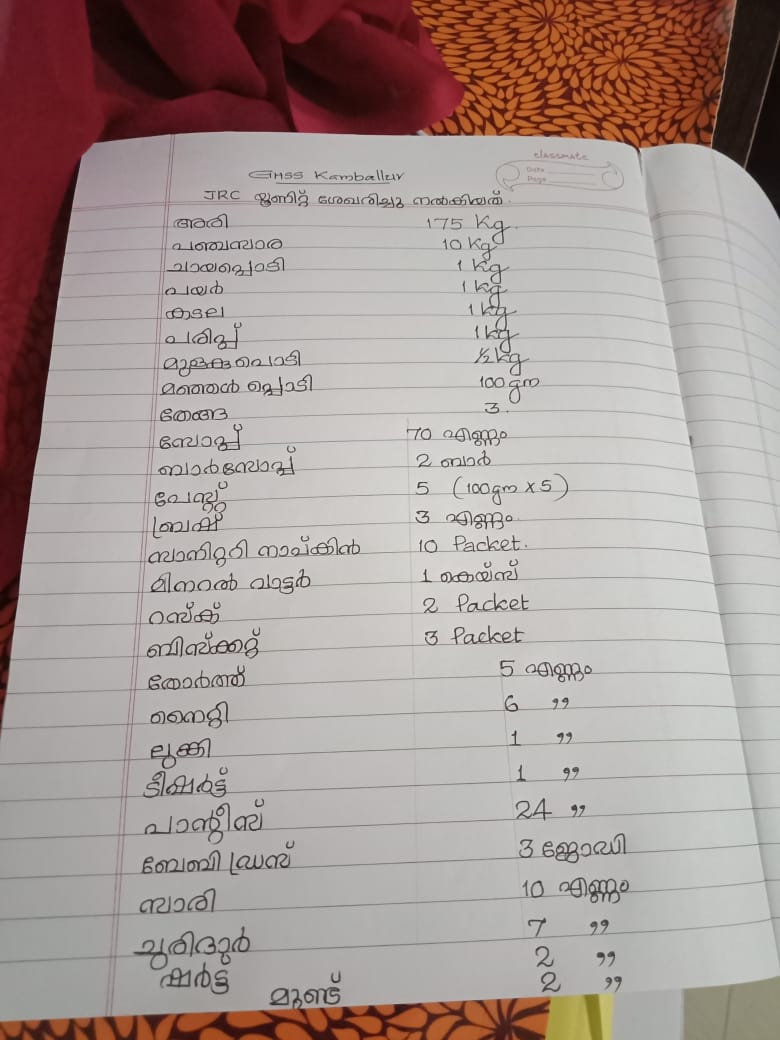 classmate
Date
Page
GHSS Kamballur
JRC യൂണിറ്റ് ശേഖരിച്ചു നൽകിയത്.
അരി 175 Kg.
പഞ്ചസാര 10 Kg
ചായപ്പൊടി 1 Kg
പയർ 1 kg
കടല 1 kg
പരിപ്പ് 1 kg
മുളകുപൊടി ½ kg
മഞ്ഞൾ പ്പൊടി 100 gm
തേങ്ങ 3.
സോപ്പ് 70 എണ്ണം
ബാർസോപ്പ് 2 ബാർ
പേസ്റ്റ് 5 (100gm x 5)
ബ്രഷ് 3 എണ്ണം.
സാനിറ്ററി നാപ്കിൻ 10 Packet.
മിനറൽ വാട്ടർ 1 കെയ്സ്
റസ്ക് 2 Packet
ബിസ്ക്കറ്റ് 3 Packet
തോർത്ത് 5 എണ്ണം
നൈറ്റി 6 ”
ലുങ്കി 1 ”
ടീഷർട്ട് 1 ”
പാന്റീസ് 24 ”
ബേബി ഡ്രസ് 3 ജോഡി
സാരി 10 എണ്ണം
ചുരിദാർ 7 ”
ഷർട്ട് 2 ”
മുണ്ട് 2 ”